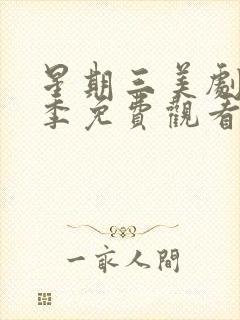 星期三美劇
季免費觀看
一家人間